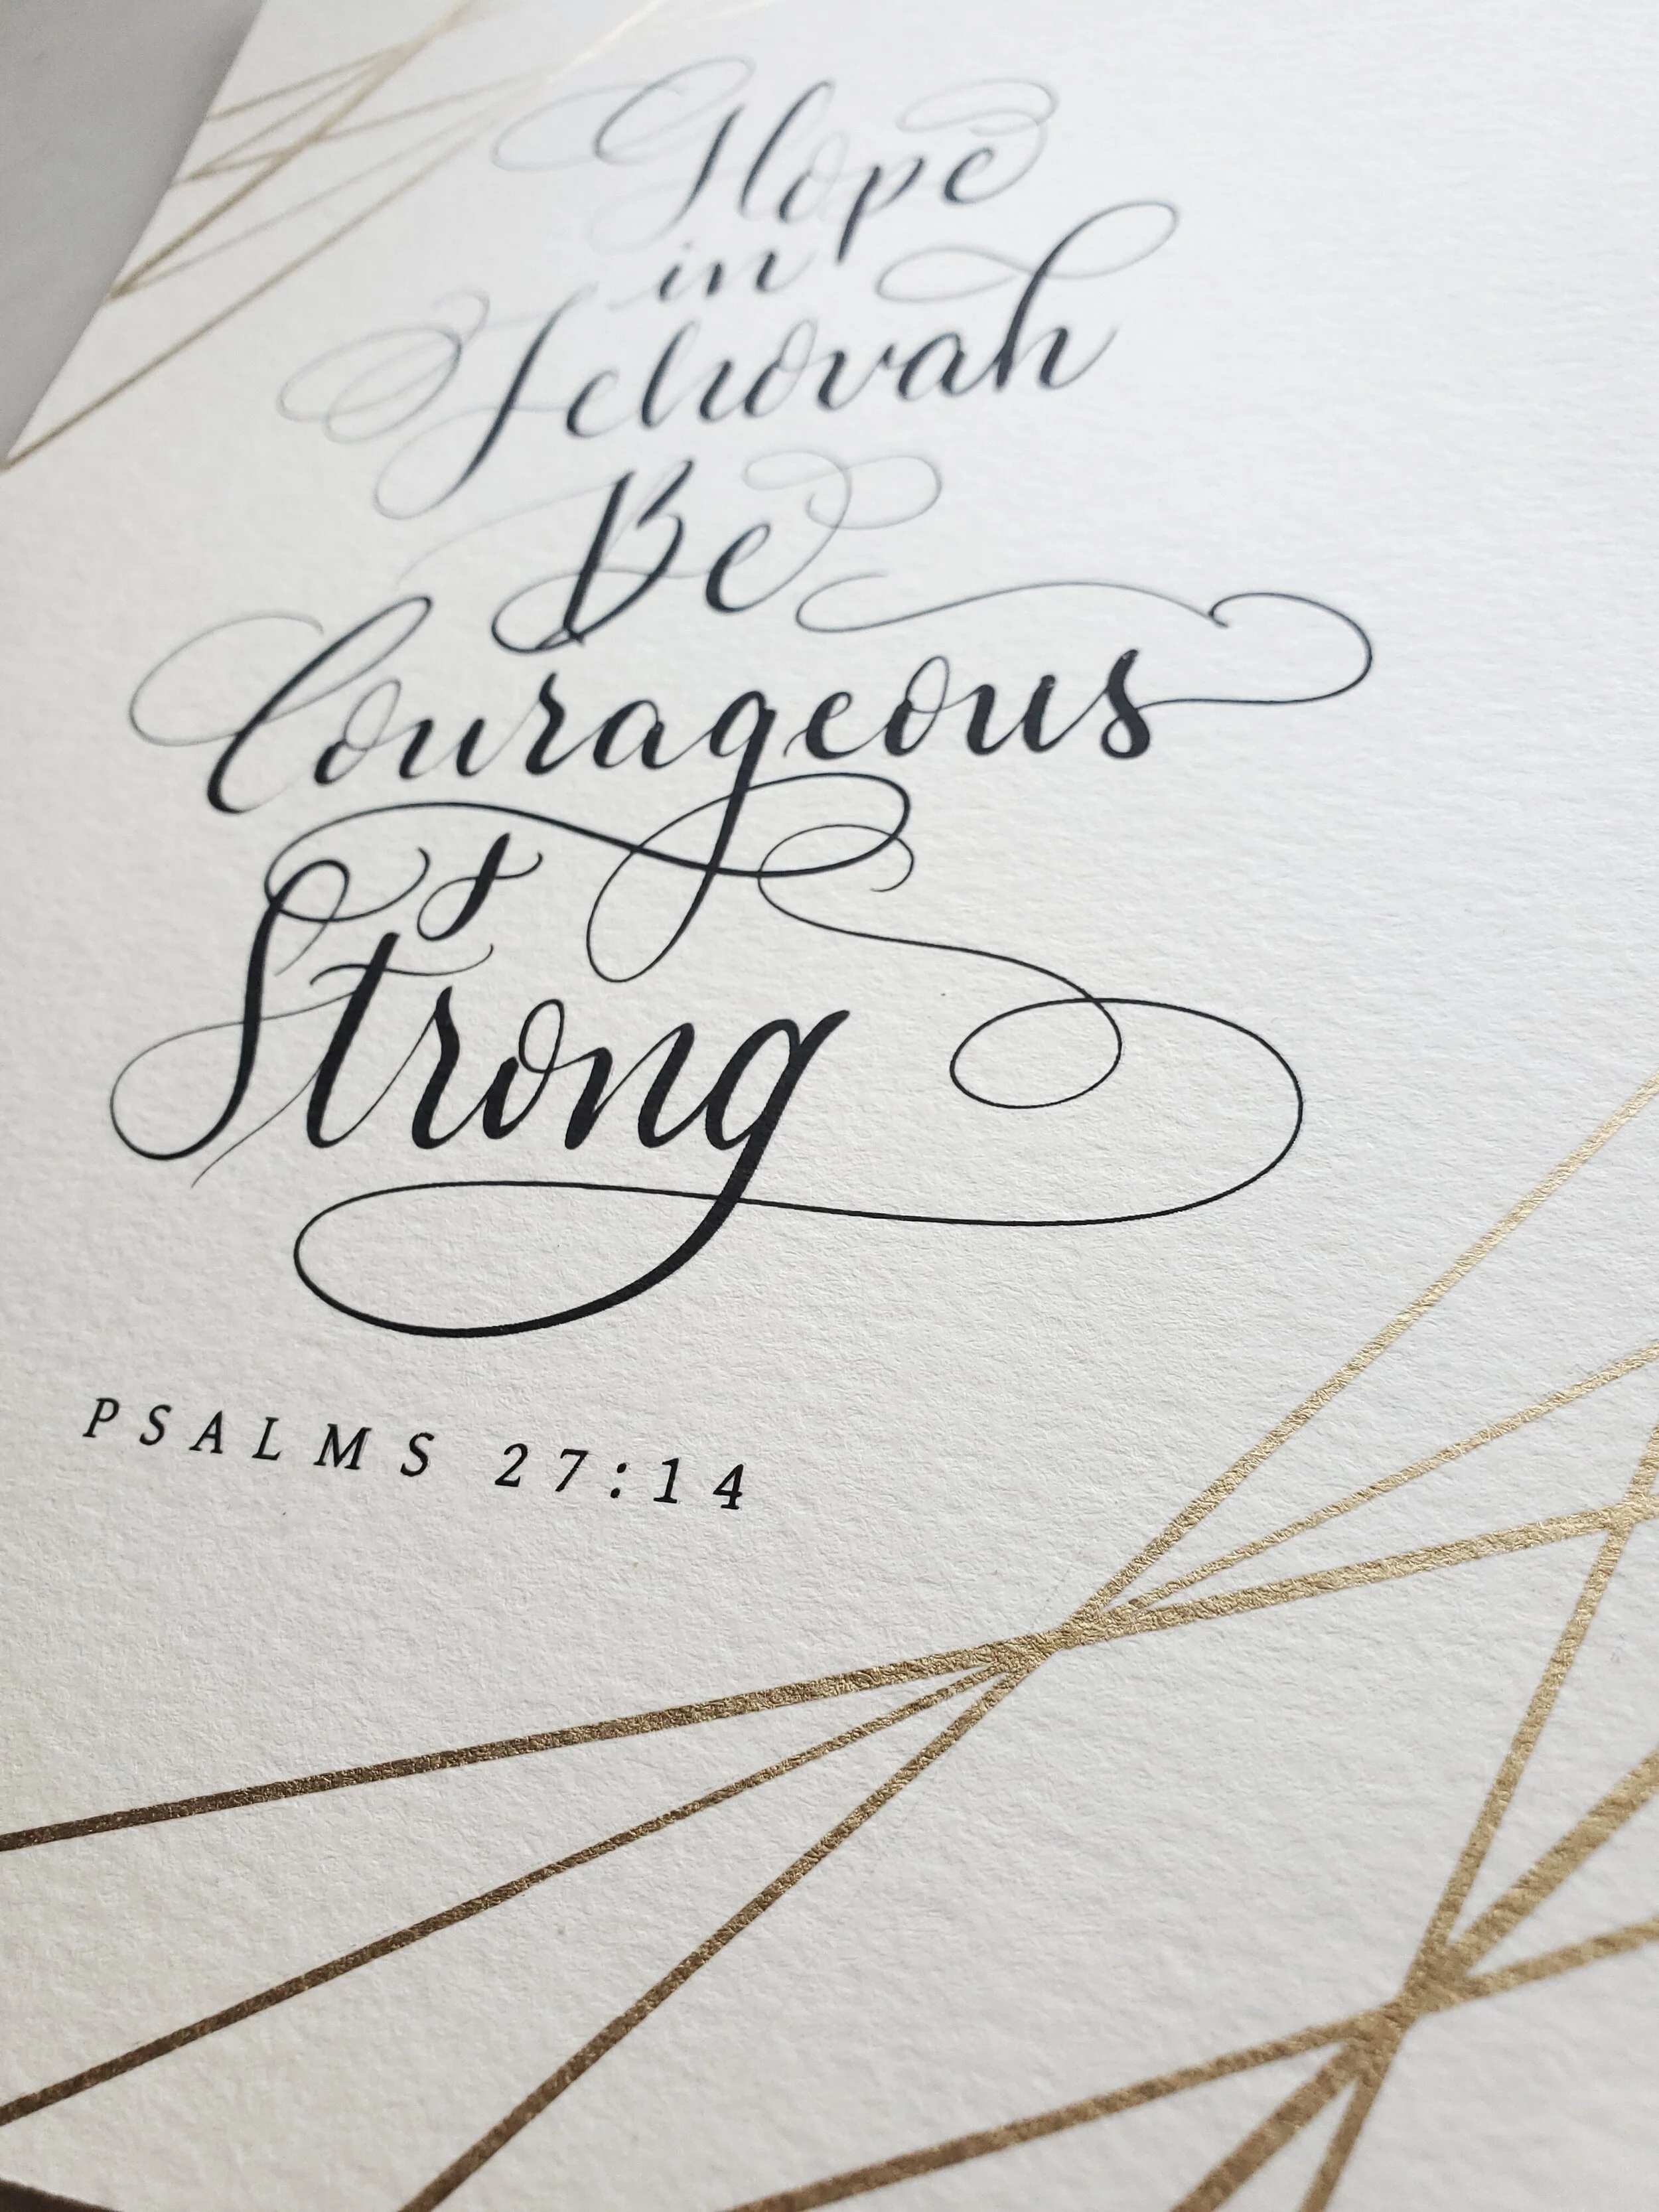 Hope
in
Jehovah
Be
Courageous
&
Strong
PSALMS 27:14